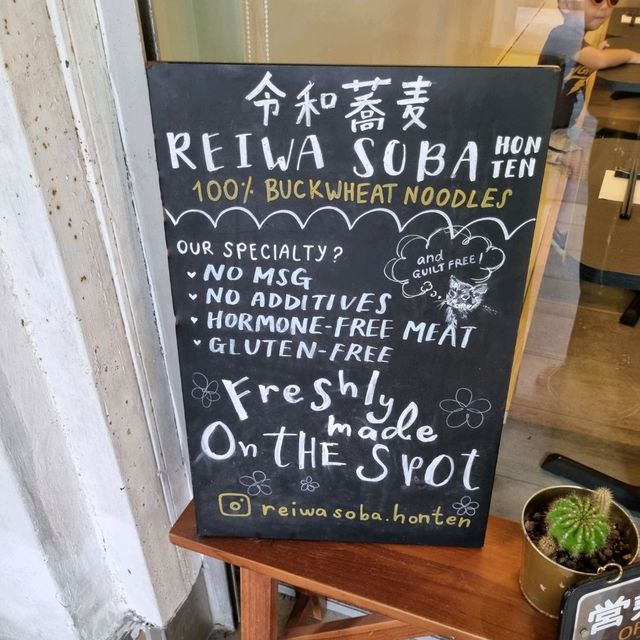 令和蕎麦
REIWA SOBA HON TEN
100% BUCKWHEAT NOODLES
OUR SPECIALTY?
and
GUILT FREE!
NO MSG
NO ADDITIVES
HORMONE-FREE MEAT
GLUTEN-FREE
Freshly
made
On THE SPOT
reiwasoba.honten
営